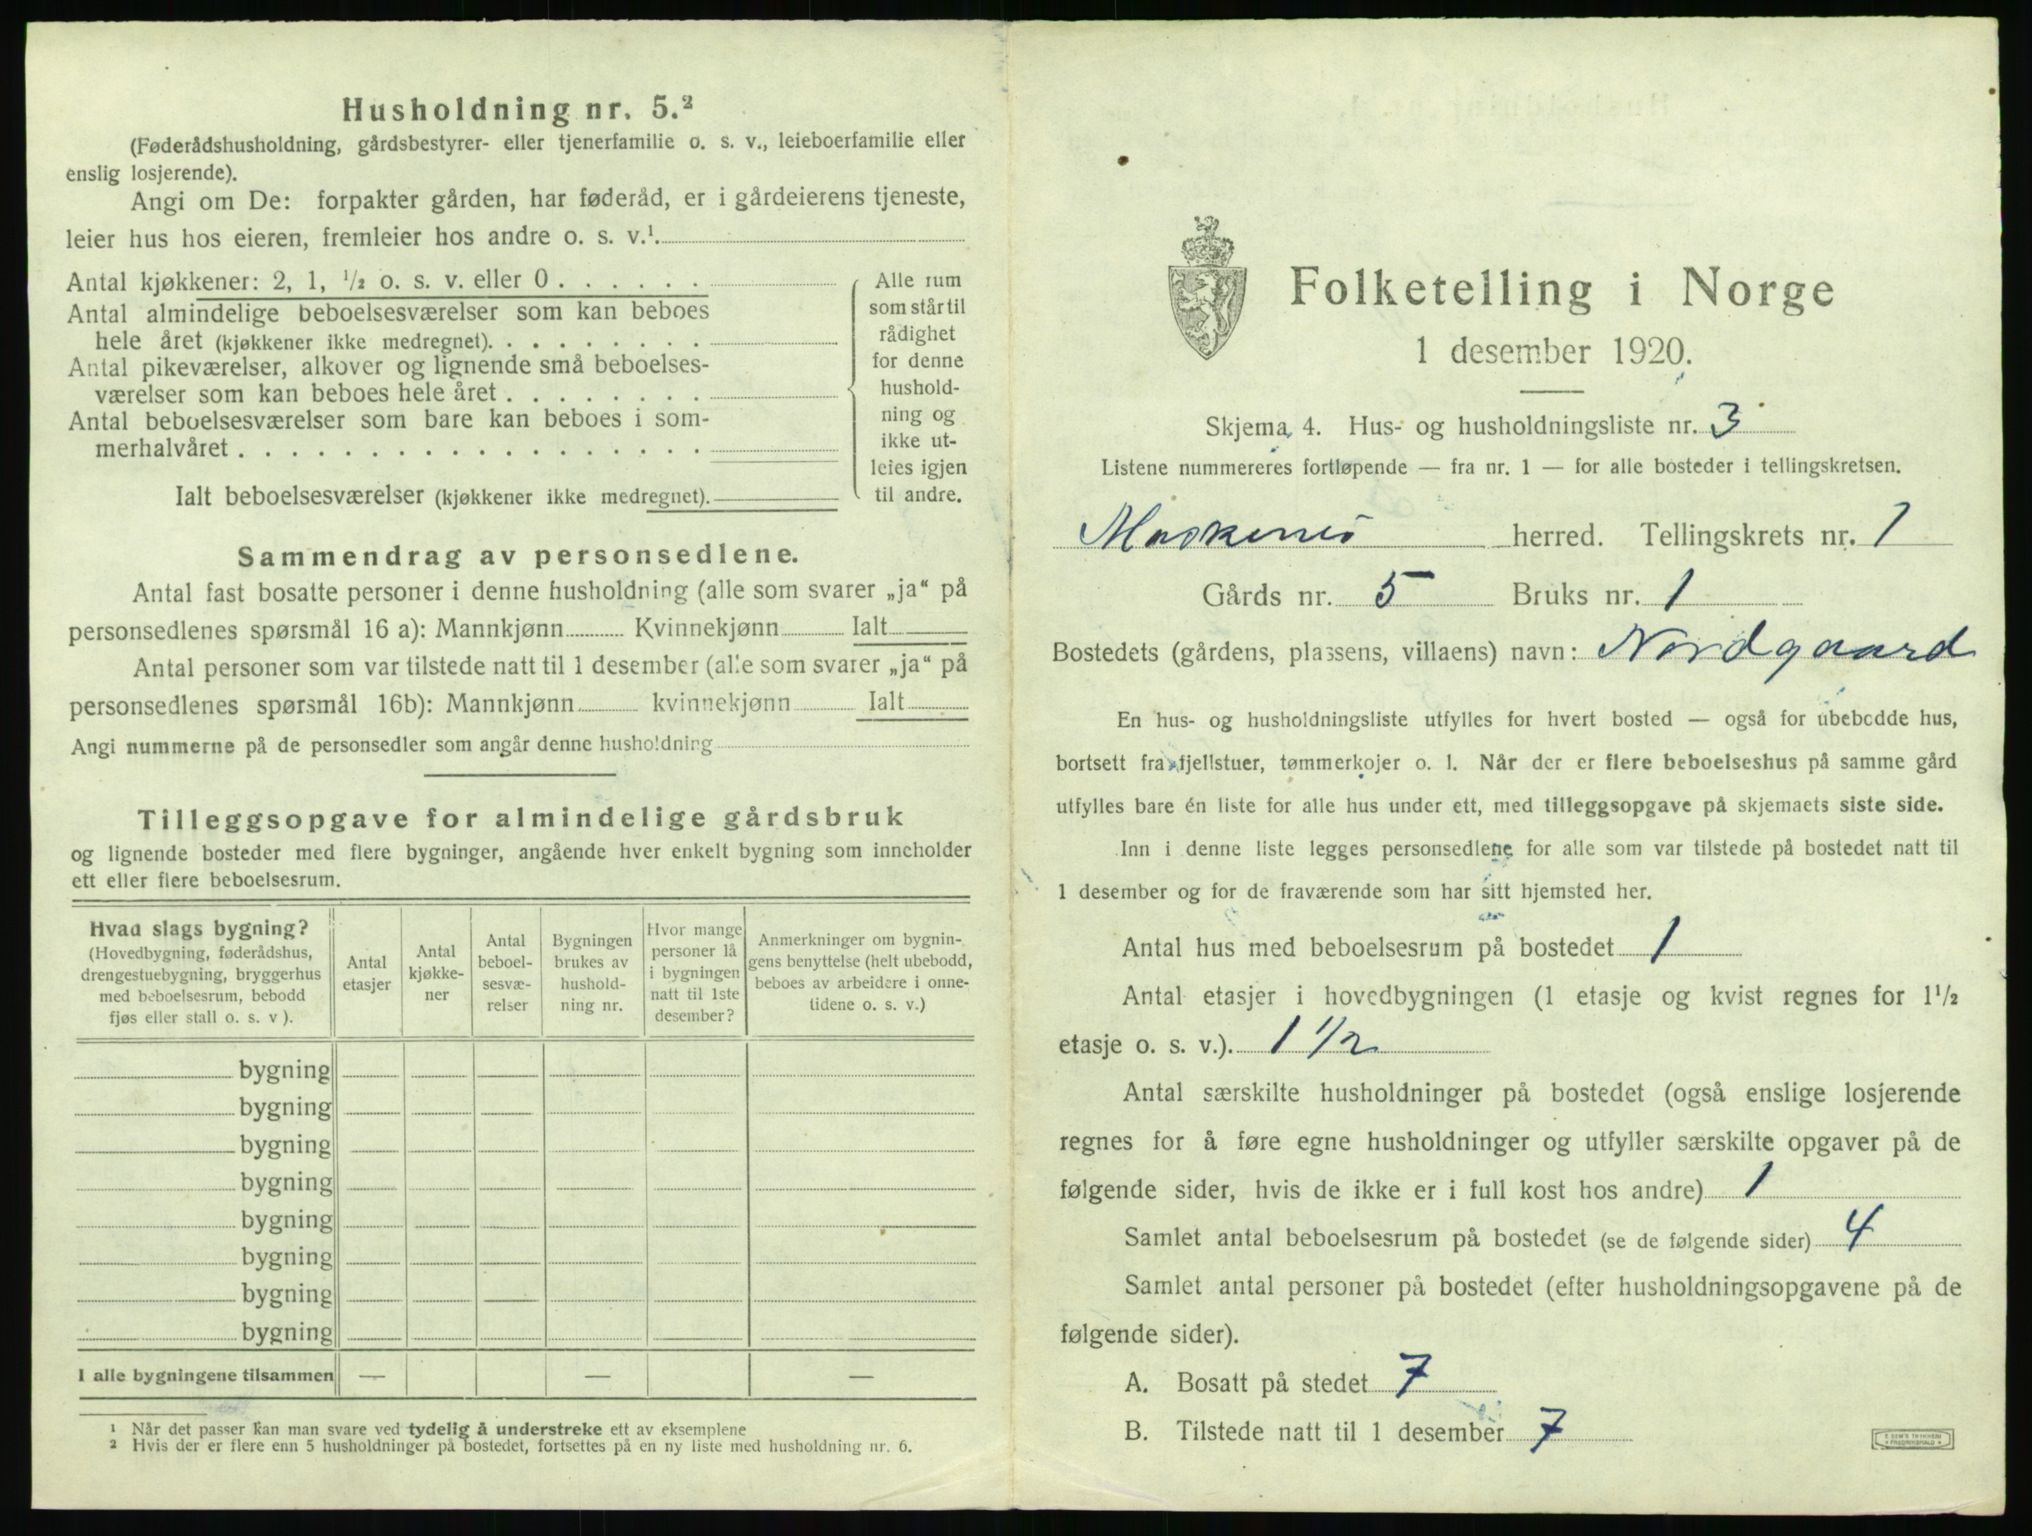 Husholdning nr. 5.²
(Føderådshusholdning, gårdsbestyrer- eller tjenerfamilie o. s. v., leieboerfamilie eller
enslig losjerende).
Angi om De: forpakter gården, har føderåd, er i gårdeierens tjeneste,
leier hus hos eieren, fremleier hos andre o. s. v.¹
Antal kjøkkener: 2, 1, ½ o. s. v. eller 0 . . . . . .
Antal almindelige beboelsesværelser som kan beboes
hele året (kjøkkener ikke medregnet). . . . . . . . .
Antal pikeværelser, alkover og lignende små beboelses-
værelser som kan beboes hele året . . . . . . . .
Antal beboelsesværelser som bare kan beboes i som-
merhalvåret . . . . . . . . . . . . . . . . . .
Ialt beboelsesværelser (kjøkkener ikke medregnet).
Alle rum
som står til
rådighet
for denne
hushold-
ning og
ikke ut-
leies igjen
til andre.
Sammendrag av personsedlene.
Antal fast bosatte personer i denne husholdning (alle som svarer „ja“ på
personsedlenes spørsmål 16 a): Mannkjønn Kvinnekjønn Ialt
Antal personer som var tilstede natt til 1 desember (alle som svarer „ja“ på
personsedlenes spørsmål 16b): Mannkjønn kvinnekjønn Ialt
Angi nummerne på de personsedler som angår denne husholdning
Tilleggsopgave for almindelige gårdsbruk
og lignende bosteder med flere bygninger, angående hver enkelt bygning som inneholder
ett eller flere beboelsesrum.
Hvad slags bygning?
(Hovedbygning, føderådshus,
drengestuebygning, bryggerhus
med beboelsesrum, bebodd
fjøs eller stall o. s. v ).
Antal
etasjer
Antal
kjøkke-
ner
Antal
beboel-
sesvæ-
relser
Bygningen
brukes av
hushold-
ning nr.
Hvor mange
personer lå
i bygningen
natt til 1ste
desember?
Anmerkninger om bygnin-
gens benyttelse (helt ubebodd,
beboes av arbeidere i onne-
tidene o. s. v.)
bygning
bygning
bygning
bygning
bygning
bygning
bygning
bygning
I alle bygningene tilsammen — — —
¹ Når det passer kan man svare ved tydelig å understreke ett av eksemplene
² Hvis der er flere enn 5 husholdninger på bostedet, fortsettes på en ny liste med husholdning nr. 6.
Folketelling i Norge
1 desember 1920.
Skjema 4. Hus- og husholdningsliste nr. 3
Listene nummereres fortløpende — fra nr. 1 — for alle bosteder i tellingskretsen.
Moskenes herred. Tellingskrets nr. 1
Gårds nr. 5 Bruks nr. 1
Bostedets (gårdens, plassens, villaens) navn: Nordgaard
En hus- og husholdningsliste utfylles for hvert bosted — også for ubebodde hus,
bortsett fra fjellstuer, tømmerkojer o. l. Når der er flere beboelseshus på samme gård
utfylles bare én liste for alle hus under ett, med tilleggsopgave på skjemaets siste side.
Inn i denne liste legges personsedlene for alle som var tilstede på bostedet natt til
1 desember og for de fraværende som har sitt hjemsted her.
Antal hus med beboelsesrum på bostedet 1
Antal etasjer i hovedbygningen (1 etasje og kvist regnes for 1½
etasje o. s. v.). 1 1/2
Antal særskilte husholdninger på bostedet (også enslige losjerende
regnes for å føre egne husholdninger og utfyller særskilte opgaver på de
følgende sider, hvis de ikke er i full kost hos andre) 1
Samlet antal beboelsesrum på bostedet (se de følgende sider) 4
Samlet antal personer på bostedet (efter husholdningsopgavene på de
følgende sider).
A. Bosatt på stedet 7
B. Tilstede natt til 1 desember 7